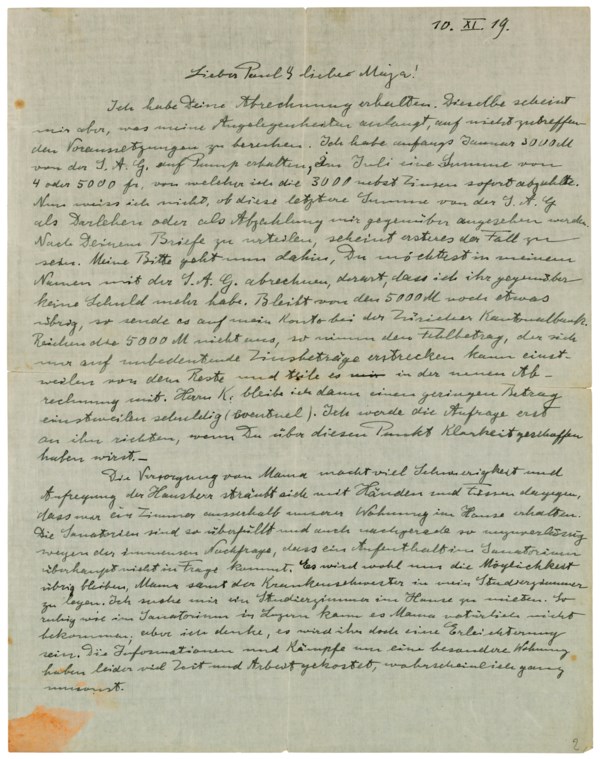 10. XI. 19.
Lieber Paul & liebe Maja!
Ich habe Deine Abrechnung erhalten. Dieselbe scheint
mir aber, was meine Angelegenheiten anlangt, auf nicht zutreffen
den Voraussetzungen zu beruhen. Ich habe anfangs Januar 3000 M
von der S. A. G. auf Pump erhalten, im Juli eine Summe von
4 oder 5000 fr, von welcher ich die 3000 nebst Zinsen sofort abzahlte.
Nun weiss ich nicht, ob diese letztere Summe von der S. A. G
als Darlehen oder als Abzahlung mir gegenüber angesehen werde.
Nach Deinem Briefe zu urteilen, scheint ersteres der Fall zu
sein. Meine Bitte geht nun dahin, Du möchtest in meinem
Namen mit der S. A. G. abrechnen, derart, dass ich ihr gegenüber
keine Schuld mehr habe. Bleibt von den 5000 M noch etwas
übrig, so sende es auf mein Konto bei der Züricher Kantonalbank.
Reichen die 5000 M nicht aus, so nimm den Fehlbetrag, der sich
nur auf unbedeutende Zinsbeträge erstrecken kann einst-
weilen von dem Reste und teile es in der neuen Ab-
rechnung mit. Herrn K. bleibe ich dann einen geringen Betrag
einstweilen schuldig (eventuel). Ich werde die Anfrage erst
an ihn richten, wenn Du über diesen Punkt Klarheit geschaffen
haben wirst.–
Die Versorgung von Mama macht viel Schwierigkeit und
Aufregung der Hausherr sträubt sich mit Händen und Füssen dagegen,
dass wir ein Zimmer ausserhalb unserer Wohnung im Hause erhalten.
Die Sanatorien sind so überfüllt und auch nachgerade so unzuverlässig
wegen der immensen Nachfrage, dass ein Aufenthalt im Sanatorium
überhaupt nicht in Frage kommt. Es wird wohl nur die Möglichkeit
übrig bleiben, Mama samt der Krankenschwester in mein Studierzimmer
zu legen. Ich suche mir ein Studierzimmer im Hause zu mieten. So
ruhig wie im Sanatorium in Luzern kann es Mama natürlich nicht
bekommen; aber ich denke, es wird ihr doch eine Erleichterung
sein. Die Informationen und Kämpfe um eine besondere Wohnung
haben leider viel Zeit und Arbeit gekostet, wahrscheinlich ganz
umsonst.
2